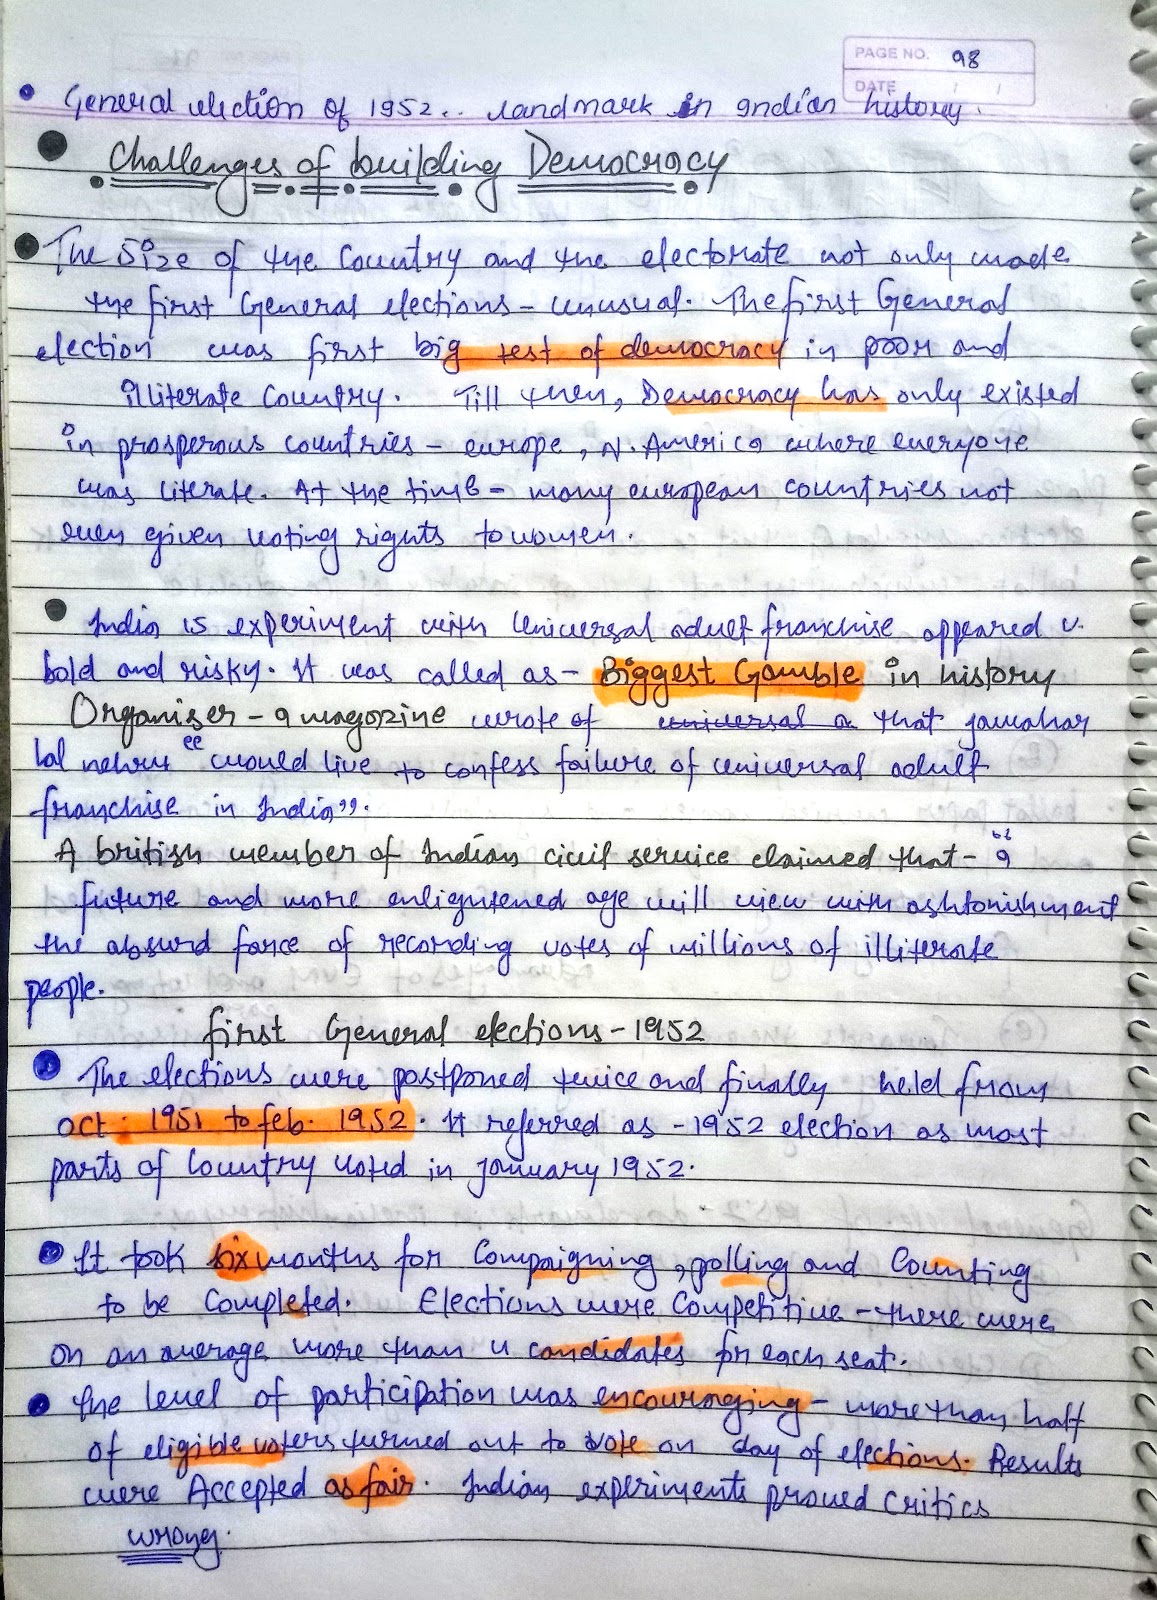 PAGE NO. 98
DATE / /
• General election of 1952.. landmark in Indian history.
• Challenges of building Democracy
• The Size of the Country and the electorate not only made
the first General elections - unusual. The first General
election was first big test of democracy in poor and
illiterate Country. Till then, Democracy has only existed
in prosperous countries - europe, N. America where everyone
was literate. At the time - many european countries not
even given voting rights to women.
• India is experiment with Universal adult franchise appeared v.
bold and risky. It was called as - Biggest Gamble in history
Organiser - a magazine wrote of universal a that jawahar
lal nehru "would live to confess failure of universal adult
franchise in India".
A british member of Indian civil service claimed that - "a
future and more enlightened age will view with ashtonishment
the absurd farce of recording votes of millions of illiterate
people.
first General elections - 1952
• The elections were postponed twice and finally held from
oct: 1951 to feb. 1952. It referred as - 1952 election as most
parts of Country voted in january 1952.
• It took six months for Campaigning, polling and Counting
to be Completed. Elections were Competitive - there were
on an average more than 4 candidates for each seat.
• The level of participation was encouraging - more than half
of eligible voters turned out to vote on day of elections. Results
were Accepted as fair. Indian experiments proved critics
wrong.